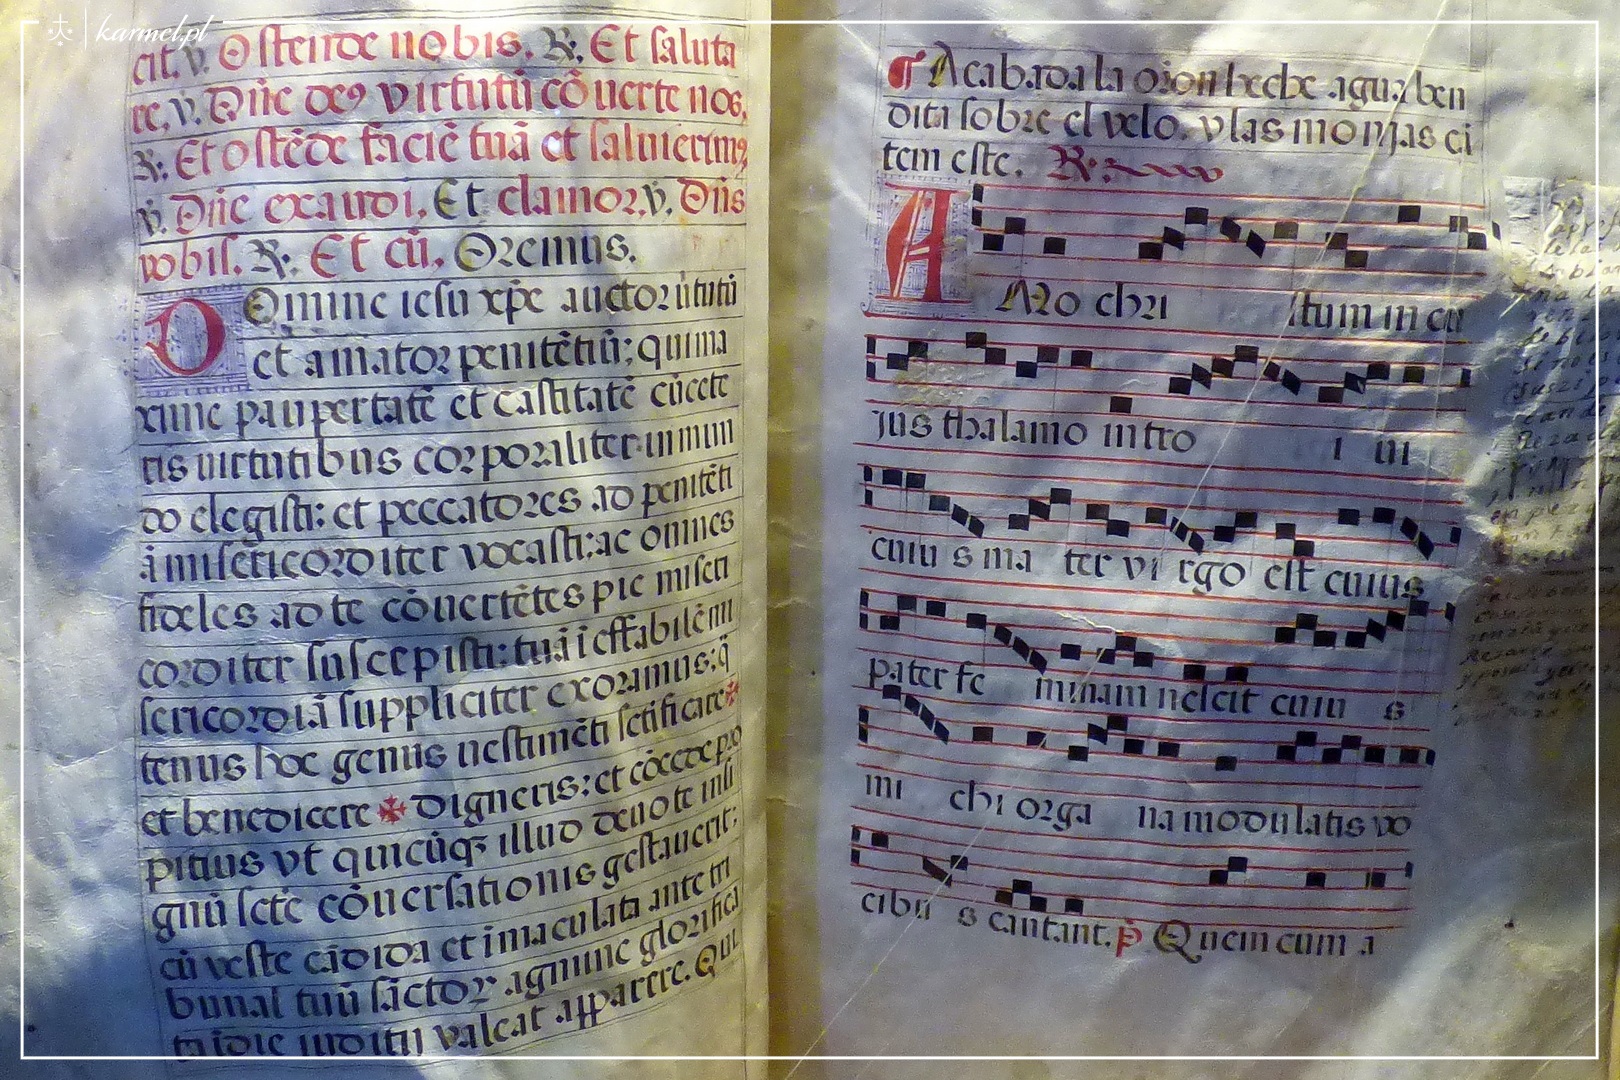 karmel.pl
cit. ℣. Ostende nobis. ℟. Et saluta
re. ℣. Dñe deꝰ virtutũ cõuerte nos,
℟. Et ostẽde faciẽ tuã et saluierimꝰ
℣. Dñe exaudi. Et clamor. ℣. Dñs
vobis. ℟. Et cũ. Oremus.
Domine iesu xp̃e auctor uirtutũ
et amator penitẽtiũ; qui ma
xime paupertatẽ et castitatẽ cũcete
ris uirtutibus corporaliter in mun
do elegisti: et peccatores ad penitẽti
ã misericorditer vocasti: ac omnes
fideles ad te cõuertẽtes pie miseri
corditer suscepisti: tuã ĩeffabilẽ mi
sericordiã suppliciter exoramus: q̃
tenus hoc genus uestimẽti sctificare
et benedicere ✠ digneris: et cõcede pro
pitius vt quicũqꝫ illud deuote insi
gniũ sctẽ cõuersationis gestauerit;
cũ veste cãdida et imaculata ante tri
bunal tuũ sãctorꝝ agmine glorifica
ta ĩ die iuditij valeat apparere. Qui
¶ Acabada la oron heche agua ben
dita sobre el velo. y las monjas ci
ten este. ℟.
AMo chri stum in cu
jus thalamo intro i ui
cuiu s ma ter vi rgo est cuius
pater fe minam nescit cuiu s
mi chi orga na modulatis vo
cibu s cantant. p̃ Quem cum a